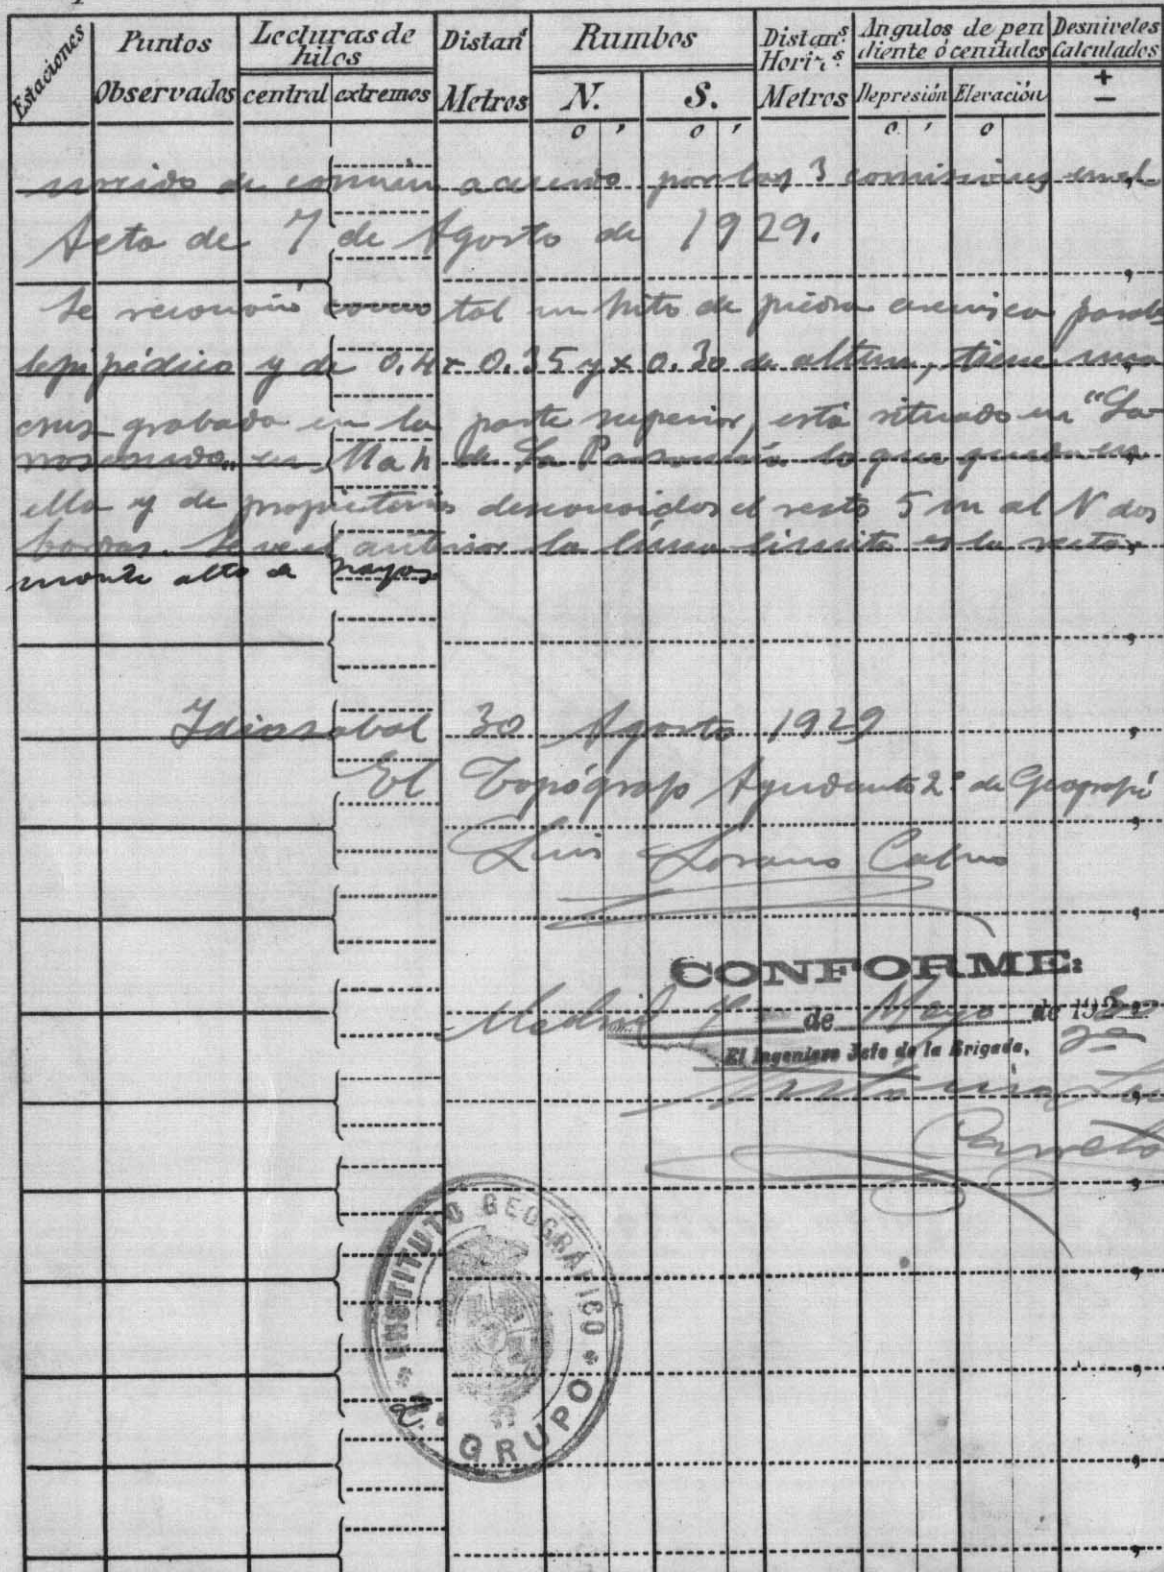 Estaciones
Puntos Observados
Lecturas de hilos
central extremos
Distan.s Metros
Rumbos
N. S.
Distan.s Horiz.s Metros
Angulos de pendiente ó cenitales
Depresión Elevación
Desniveles Calculados
+
-
o ' o ' o ' o
de común acuerdo por las 3 comisiones en el
Acta de 7 de Agosto de 1929.
Se reconoció como tal un hito de piedra arenisca parale
lepipédico y de 0.4 x 0.35 y x 0.30 de altura, tiene una
cruz grabada en la parte superior, está situado en "La
en de La Parzonería lo que queda en
ella y de propietarios desconocidos el resto 5 m al N dos
bordas. Se ve el anterior la línea límite es la recta,
monte alto de hayas
Idiazabal 30 Agosto 1929
El Topógrafo Ayudante 2º de Geografí
Luis Lozano Calvo
CONFORME:
Madrid de Mayo de 19
El Ingeniero Jefe de la Brigada,
INSTITUTO GEOGRÁFICO
2º GRUPO